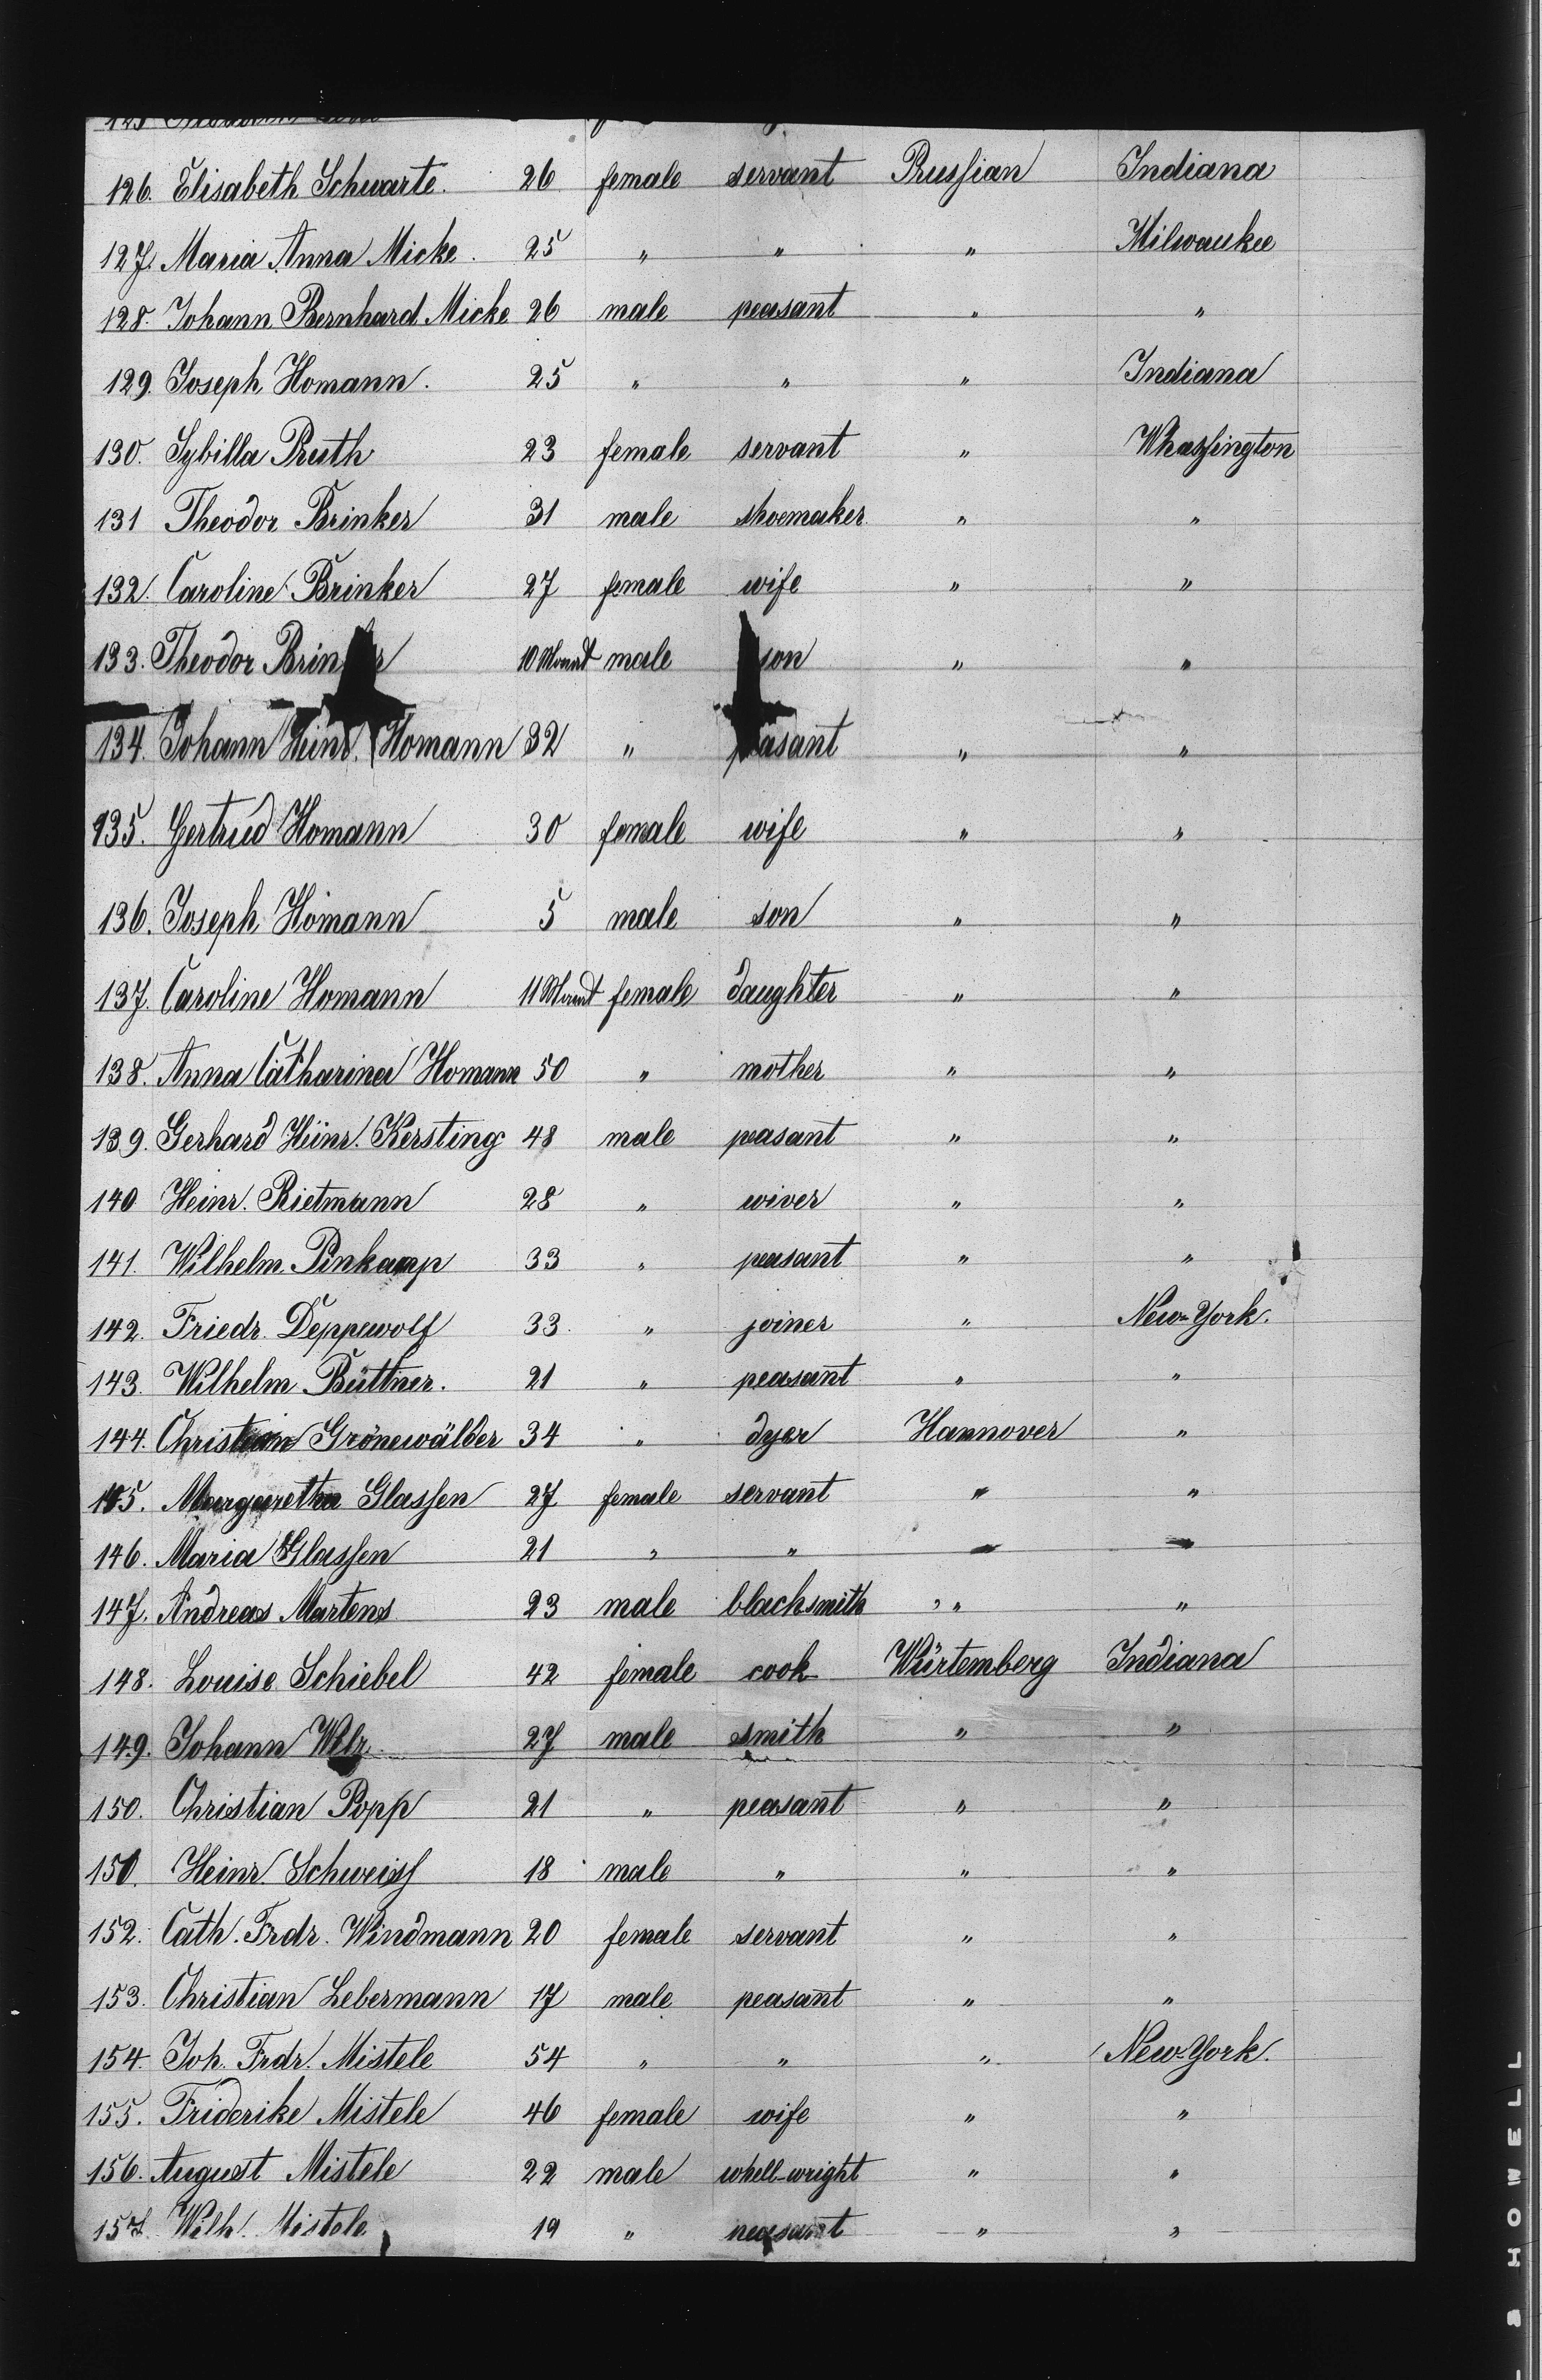 126. Elisabeth Schwarte. 26 female servant Prussian Indiana
127. Maria Anna Micke. 25 " " " Milwaukee
128. Johann Bernhard Micke 26 male peasant " "
129. Joseph Homann. 25 " " " Indiana
130. Sybilla Pruth 23 female servant " Whassington
131 Theodor Brinker 31 male shoemaker " "
132. Caroline Brinker 27 female wife " "
133. Theodor Brinker 10 Monat male son " "
134. Johann Heinr. Homann 32 " peasant " "
135. Gertrud Homann 30 female wife " "
136. Joseph Homann 5 male son " "
137. Caroline Homann 11 Monat female daughter " "
138. Anna Catharina Homann 50 " mother " "
139. Gerhard Heinr. Kersting 48 male peasant " "
140 Heinr. Rietmann 28 " wiver " "
141. Wilhelm Pinkamp 33 " peasant " "
142. Friedr. Deppewolf 33 " joiner " New-York.
143. Wilhelm Büttner. 21 " peasant " "
144. Christian Grönewälder 34 " dyer Hannover "
145. Margaretha Glassen 27 female servant " "
146. Maria Glassen 21 " " " "
147. Andreas Martens 23 male blachsmith " "
148. Louise Schiebel 42 female cook Würtemberg Indiana
149. Johann 27 male smith " "
150. Christian Popp 21 " peasant " "
151. Heinr. Schweiss 18 male " " "
152. Cath. Frdr. Windmann 20 female servant " "
153. Christian Lebermann 17 male peasant " "
154. Joh. Frdr. Mistele 54 " " " New-York.
155. Friderike Mistele 46 female wife " "
156. August Mistele 22 male whell-wright " "
157. Wilh. Mistele 19 " peasant " "
HOWELL